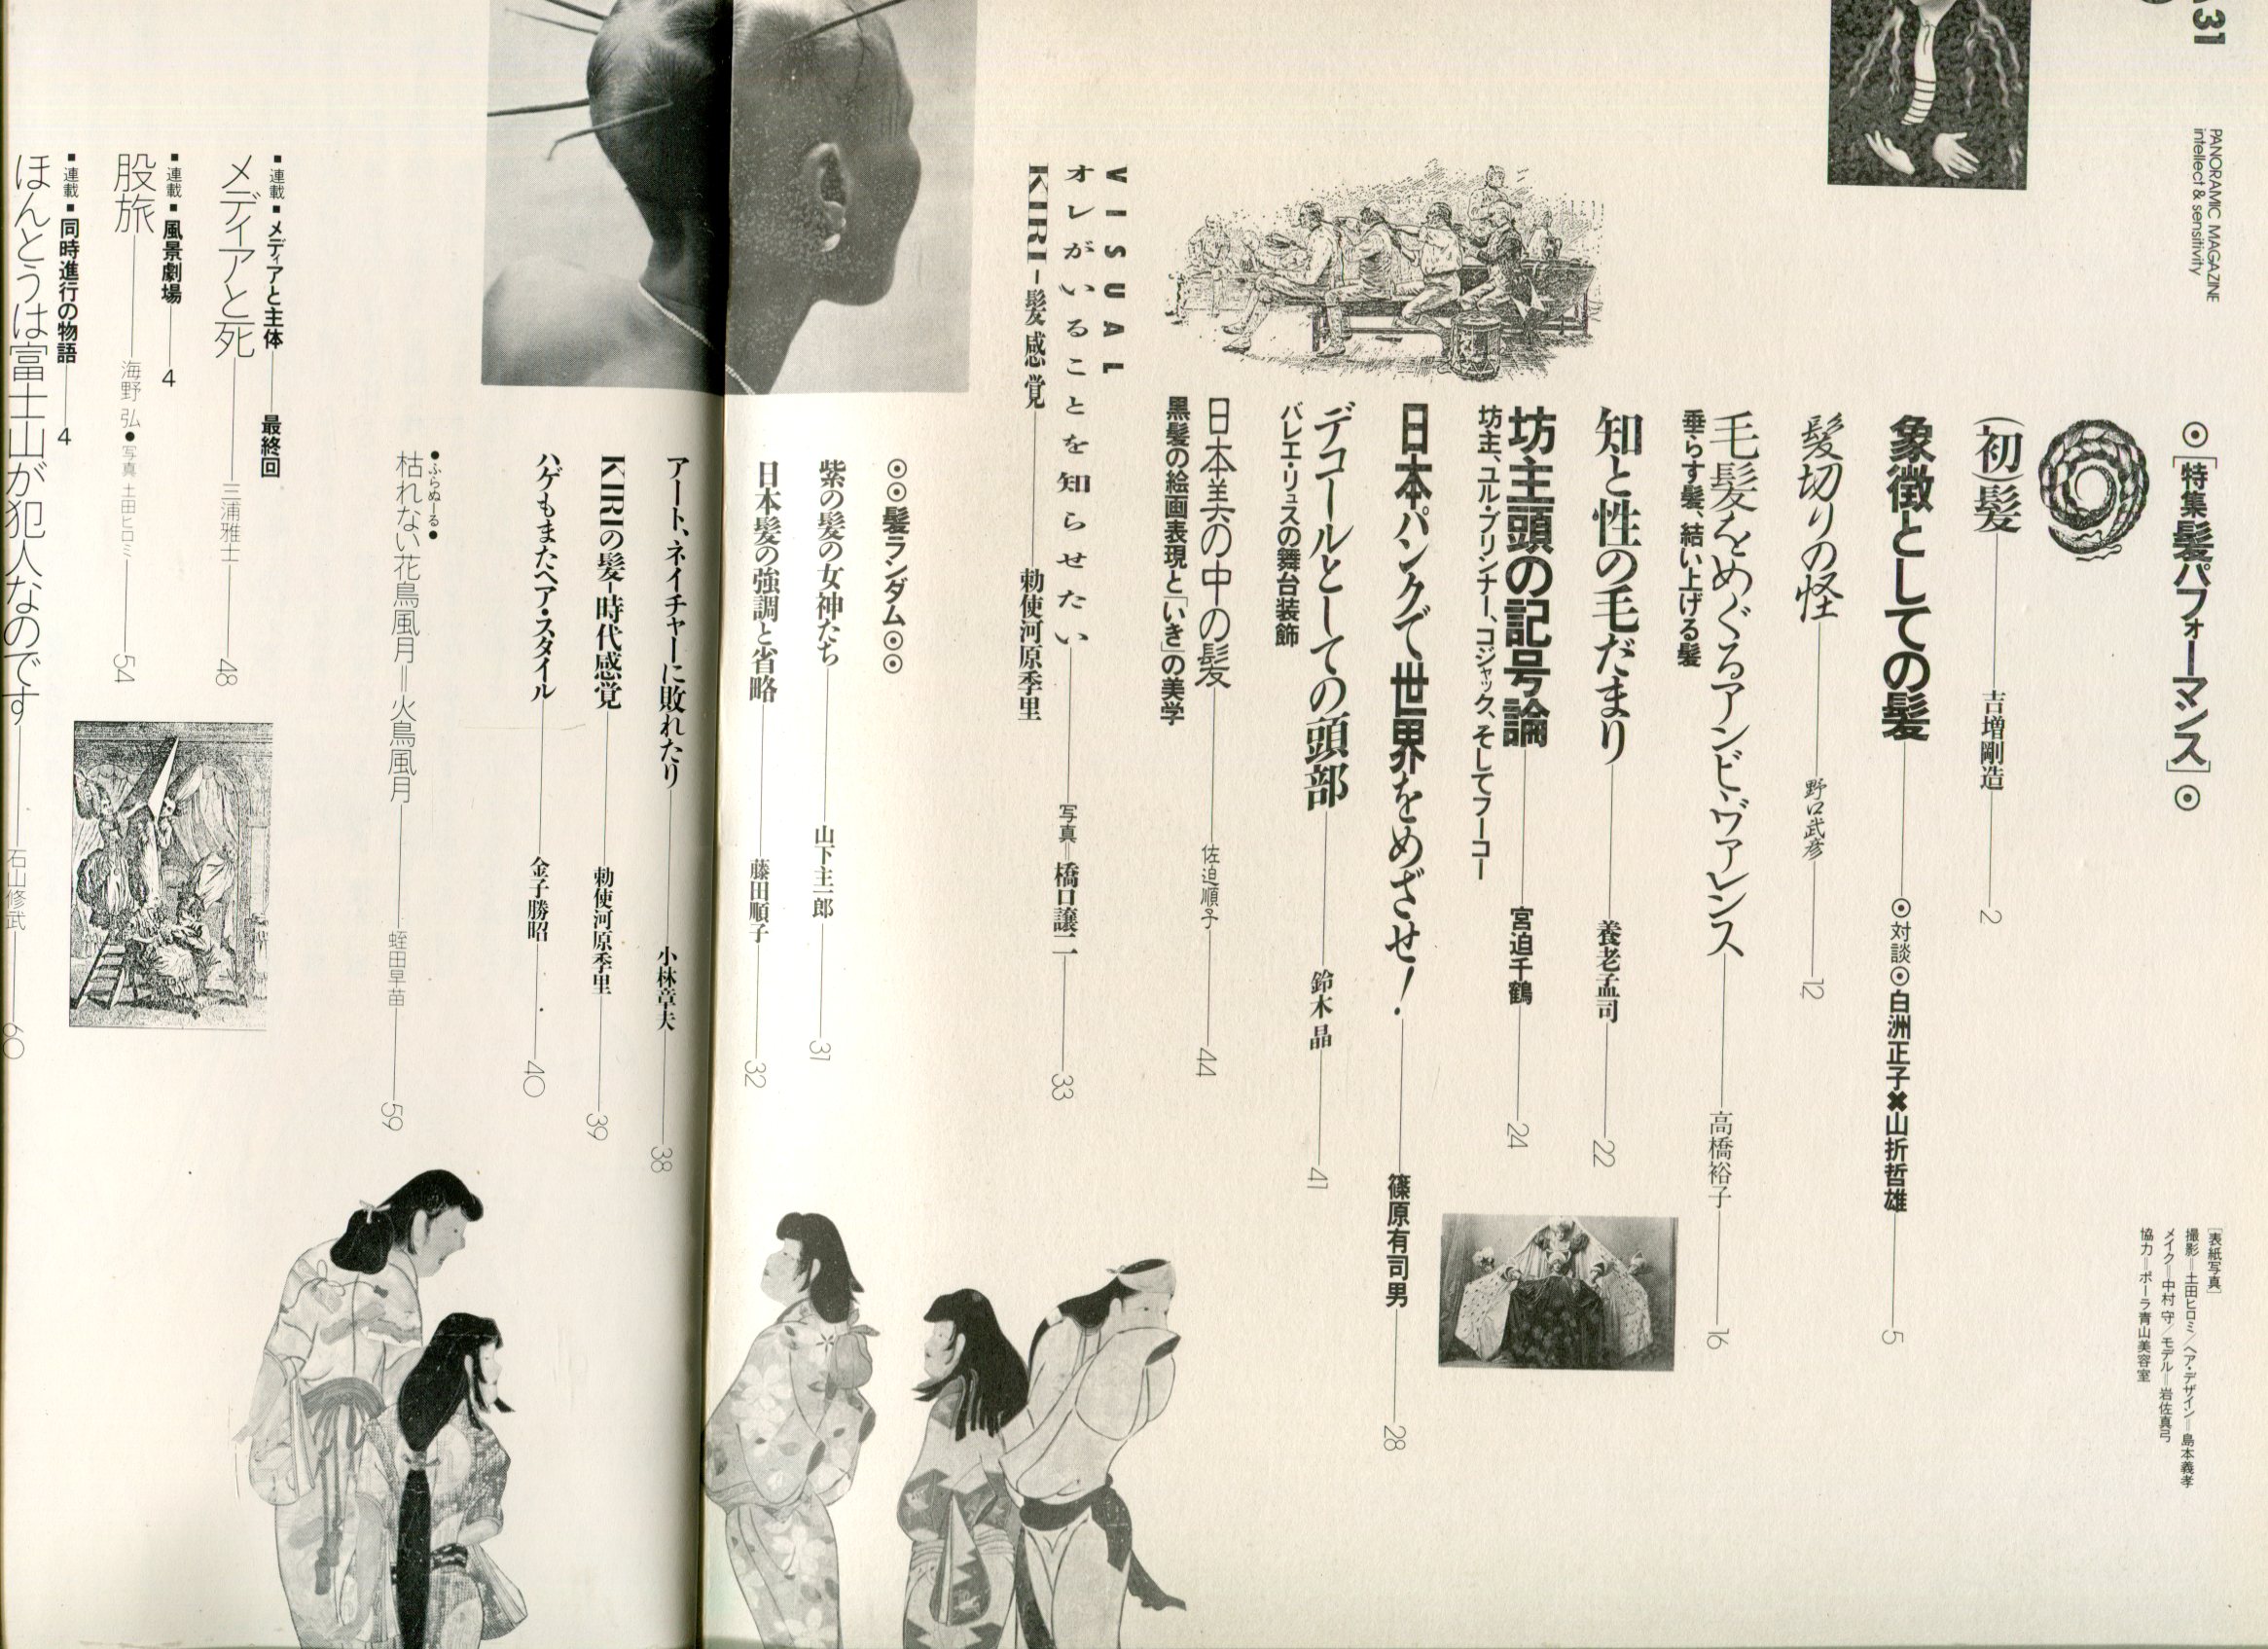 31
PANORAMIC MAGAZINE
intellect & sensitivity
[表紙写真]
撮影=土田ヒロミ/ヘア・デザイン=島本義孝
メイク=中村 守/モデル=岩佐真弓
協力=ポーラ青山美容室
⦿[特集髪パフォーマンス]⦿
(初)髪 吉増剛造 2
象徴としての髪 ⦿対談⦿白洲正子✖山折哲雄 5
髪切りの怪 野口武彦 12
毛髪をめぐるアンビ・ヴァレンス 高橋裕子 16
垂らす髪、結い上げる髪
知と性の毛だまり 養老孟司 22
坊主頭の記号論 宮迫千鶴 24
坊主、ユル・ブリンナー、コジャック、そしてフーコー
日本パンクで世界をめざせ! 篠原有司男 28
デコールとしての頭部 鈴木 晶 41
バレエ・リュスの舞台装飾
日本美の中の髪 佐迫順子 44
黒髪の絵画表現と「いき」の美学
VISUAL
オレがいることを知らせたい 写真=橋口譲二 33
KIRI-髪感覚 勅使河原季里
⦿⦿髪ランダム⦿⦿
紫の髪の女神たち 山下主一郎 31
日本髪の強調と省略 藤田順子 32
アート、ネイチャーに敗れたり 小林章夫 38
KIRIの髪-時代感覚 勅使河原季里 39
ハゲもまたヘア・スタイル 金子勝昭 40
●ふらぬーる●
枯れない花鳥風月=火鳥風月 蛭田早苗 59
■連載■メディアと主体 最終回
メディアと死 三浦雅士 48
■連載■風景劇場 4
股旅 海野 弘●写真・土田ヒロミ 54
■連載■同時進行の物語 4
ほんとうは富士山が犯人なのです 石山修武 60